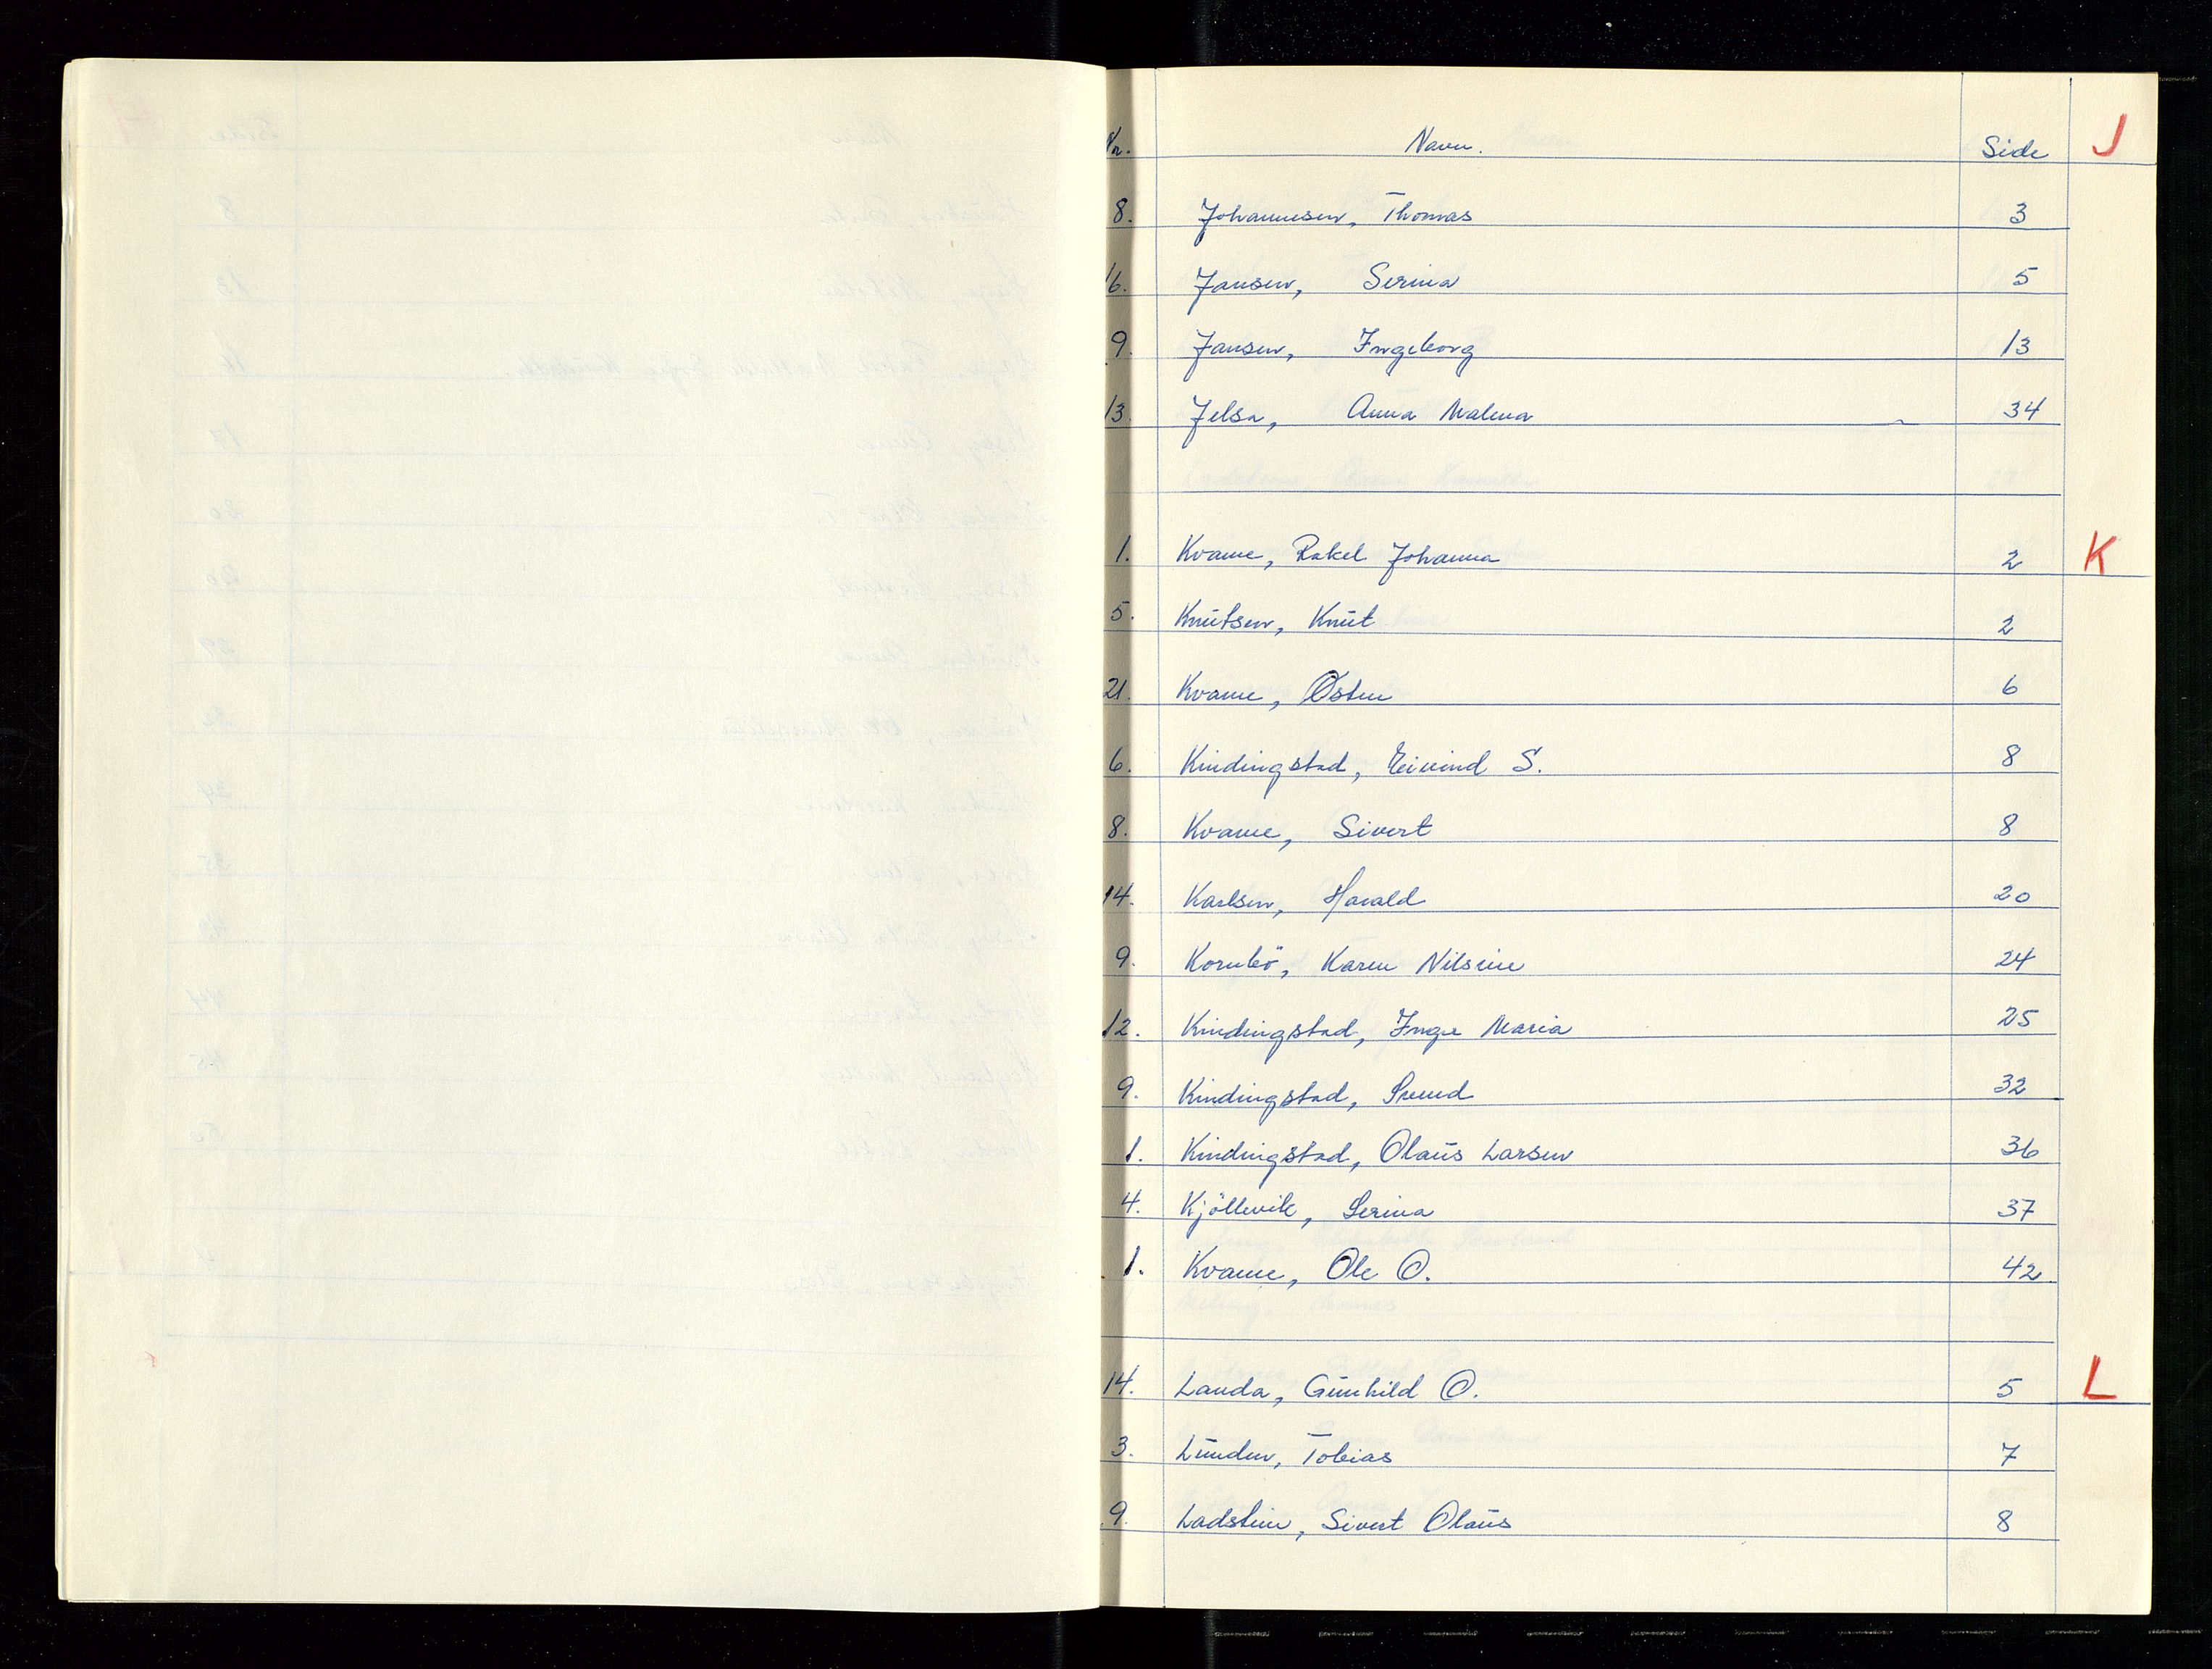 Nr. Navn. Side J
8. Johannesen, Thomas 3
16. Jansen, Serina 5
9. Jansen, Ingeborg 13
13. Jelsa, Anna Malena 34
1. Kvame, Rakel Johanna 2 K
5. Knutsen, Knut 2
21. Kvame, Østen 6
6. Kindingstad, Eivind S. 8
8. Kvame, Sivert 8
14. Karlsen, Harald 20
9. Kornbö, Karen Nilsine 24
12. Kindingstad, Inger Maria 25
9. Kindingstad, Svend 32
1. Kindingstad, Olaus Larsen 36
4. Kjöllevik, Serina 37
1. Kvame, Ole O. 42
14. Landa, Gunhild O. 5 L
3. Lunden, Tobias 7
9. Ladstein, Sivert Olaus 8